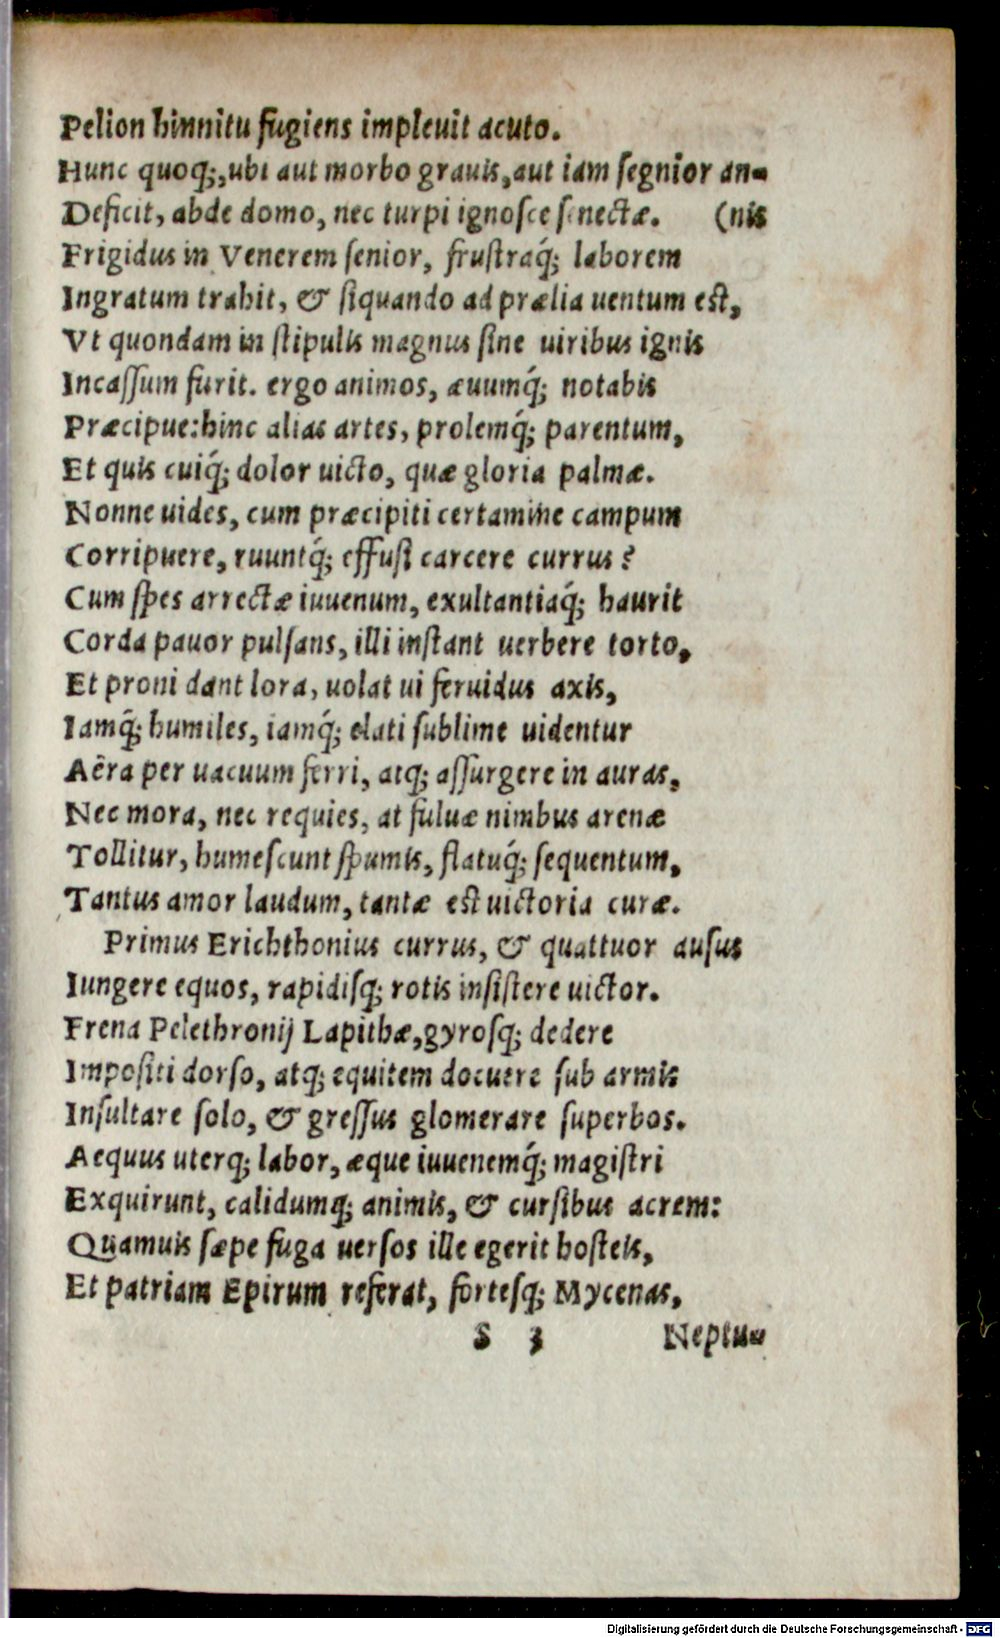 Pelion hinnitu fugiens impleuit acuto.
Hunc quoq;, ubi aut morbo grauis, aut iam ſegnior an-
Deficit, abde domo, nec turpi ignoſce ſenectæ. (nis
Frigidus in Venerem ſenior, fruſtraq́; laborem
Ingratum trahit, & ſiquando ad prælia uentum eſt,
Vt quondam in ſtipulis magnus ſine uiribus ignis
Incaſſum furit. ergo animos, æuumq́; notabis
Præcipue: hinc alias artes, prolemq́; parentum,
Et quis cuiq́; dolor uicto, quæ gloria palmæ.
Nonne uides, cum præcipiti certamine campum
Corripuere, ruuntq́; effuſi carcere currus?
Cum ſpes arrectæ iuuenum, exultantiaq́; haurit
Corda pauor pulſans, illi inſtant uerbere torto,
Et proni dant lora, uolat ui feruidus axis,
Iamq́; humiles, iamq́; elati ſublime uidentur
Aëra per uacuum ferri, atq; aſſurgere in auras,
Nec mora, nec requies, at fuluæ nimbus arenæ
Tollitur, humeſcunt ſpumis, flatuq́; ſequentum,
Tantus amor laudum, tantæ eſt uictoria curæ.
Primus Erichthonius currus, & quattuor auſus
Iungere equos, rapidiſq; rotis inſiſtere uictor.
Frena Pelethronij Lapithæ, gyroſq; dedere
Impoſiti dorſo, atq; equitem docuere ſub armis
Inſultare ſolo, & greſſus glomerare ſuperbos.
Aequus uterq; labor, æque iuuenemq́; magiſtri
Exquirunt, calidumq; animis, & curſibus acrem:
Quamuis ſæpe fuga uerſos ille egerit hoſteis,
Et patriam Epirum referat, forteſq; Mycenas,
S 3 Neptu-
Digitalisierung gefördert durch die Deutsche Forschungsgemeinschaft - DFG